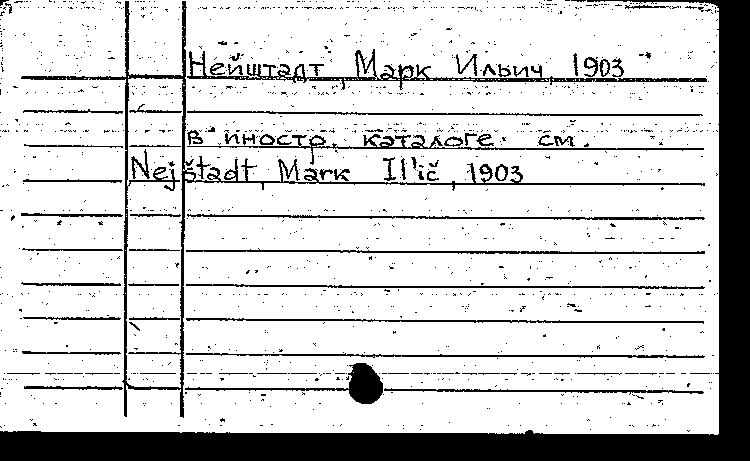 Нейштадт, Марк Ильич, 1903
в иностр. каталоге см.
Nejštadt, Mark Il'ič, 1903